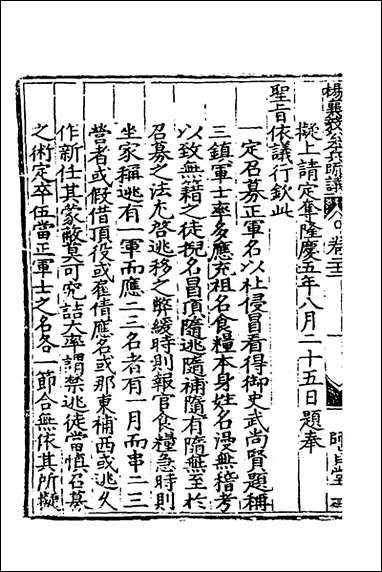 楊襄毅公本兵疏議 卷二十三
擬上請定奪隆慶五年八月二十五日題奉
聖旨依議行欽此
一定召募正軍名以杜侵冒看得御史武尚賢題稱
三鎮軍士率多應充祖名食糧本身姓名漫無稽考
以致無藉之徒捏名冒頂隨逃隨補隨有隨無至於
召募之法尤啓逃移之弊緩時則報官食糧急時則
坐家稱逃有一軍而應二三名者有一月而串二三
營者或假借頂役或雇倩應名或那東補西或逃久
作新任其蒙蔽莫可究詰大率謂禁逃徒當慎召募
之術定卒伍當正軍士之名各一節合無依其所擬